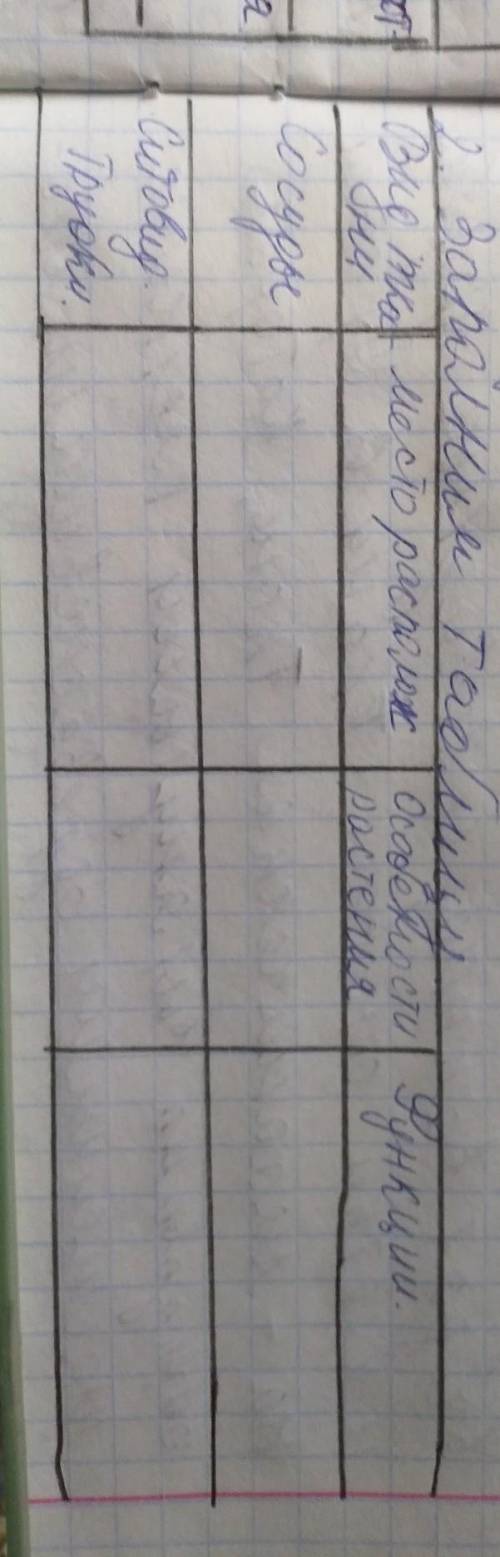 2. Заполним таблицу
Вид тка-
ни
место располож
особеності
растения
Функции.
Сосуды
Ситовид.
Трубки.